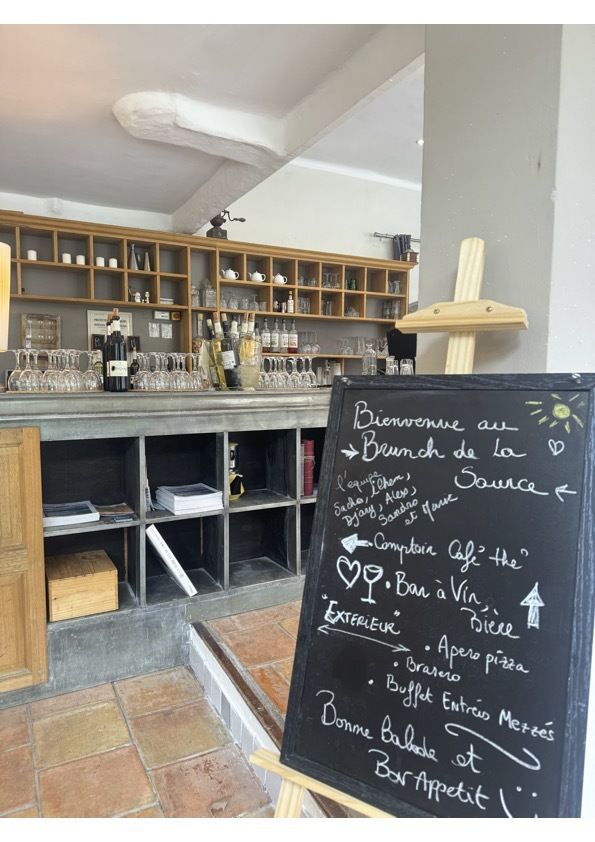 Bienvenue au
Brunch de la
Source
l'équipe
Sacha,
Djary, Alex,
Sandro
et Marie
Comptoir Café "thé"
Bar à Vin,
Bière
"EXTERIEUR"
• Apero pizza
• Brasero
• Buffet Entrées Mezzés
Bonne Balade et
Bon Appetit